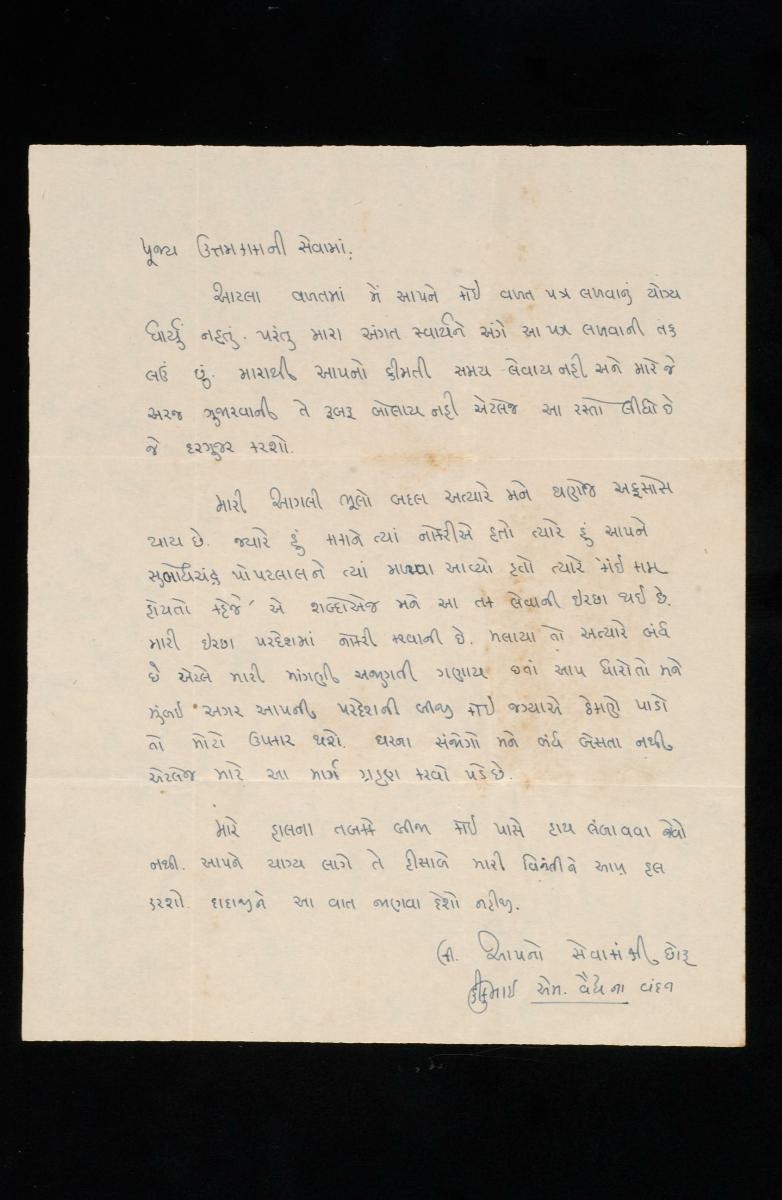 પૂજ્ય ઉત્તમકાકાની સેવામાં,
આટલા વખતમાં મેં આપને કોઈ વખત પત્ર લખવાનું યોગ્ય
ધાર્યું નહતું. પરંતુ મારા અંગત સ્વાર્થને અંગે આ પત્ર લખવાની તક
લઉં છું. મારાથી આપનો કીમતી સમય લેવાય નહી અને મારે જે
અરજ ગુજારવાની તે રૂબરૂ બોલાય નહી એટલેજ આ રસ્તો લીધો છે
જે દરગુજર કરશો.
મારી આગલી ભૂલો બદલ અત્યારે મને ઘણોજ અફસોસ
થાય છે. જ્યારે હું કાકાને ત્યાં નોકરીએ હતો ત્યારે હું આપને
સુબોધચંદ્ર પોપટલાલને ત્યાં મળવા આવ્યો હતો ત્યારે 'કાંઈ કામ
હોયતો કહેજે' એ શબ્દોએજ મને આ તક લેવાની ઇચ્છા થઈ છે.
મારી ઇચ્છા પરદેશમાં નોકરી કરવાની છે. મલાયા તો અત્યારે બંધ
છે એટલે મારી માંગણી અજુગતી ગણાય છતાં આપ ધારોતો મને
મુંબઈ અગર આપની પરદેશની બીજી કોઈ જગ્યાએ ઠેકાણે પાડો
તો મોટો ઉપકાર થશે. ઘરના સંજોગો મને બંધ બેસતા નથી
એટલેજ મારે આ માર્ગ ગ્રહણ કરવો પડે છે.
મારે હાલના તબક્કે બીજા કોઈ પાસે હાથ લંબાવવા જેવો
નથી. આપને યોગ્ય લાગે તે હીસાબે મારી વિનંતીને આપ હલ
કરશો. દાદાજીને આ વાત જાણવા દેશો નહીજ.
લી. આપનો સેવાકાંક્ષી છોરૂ
એમ. વૈદ્ય ના વંદન